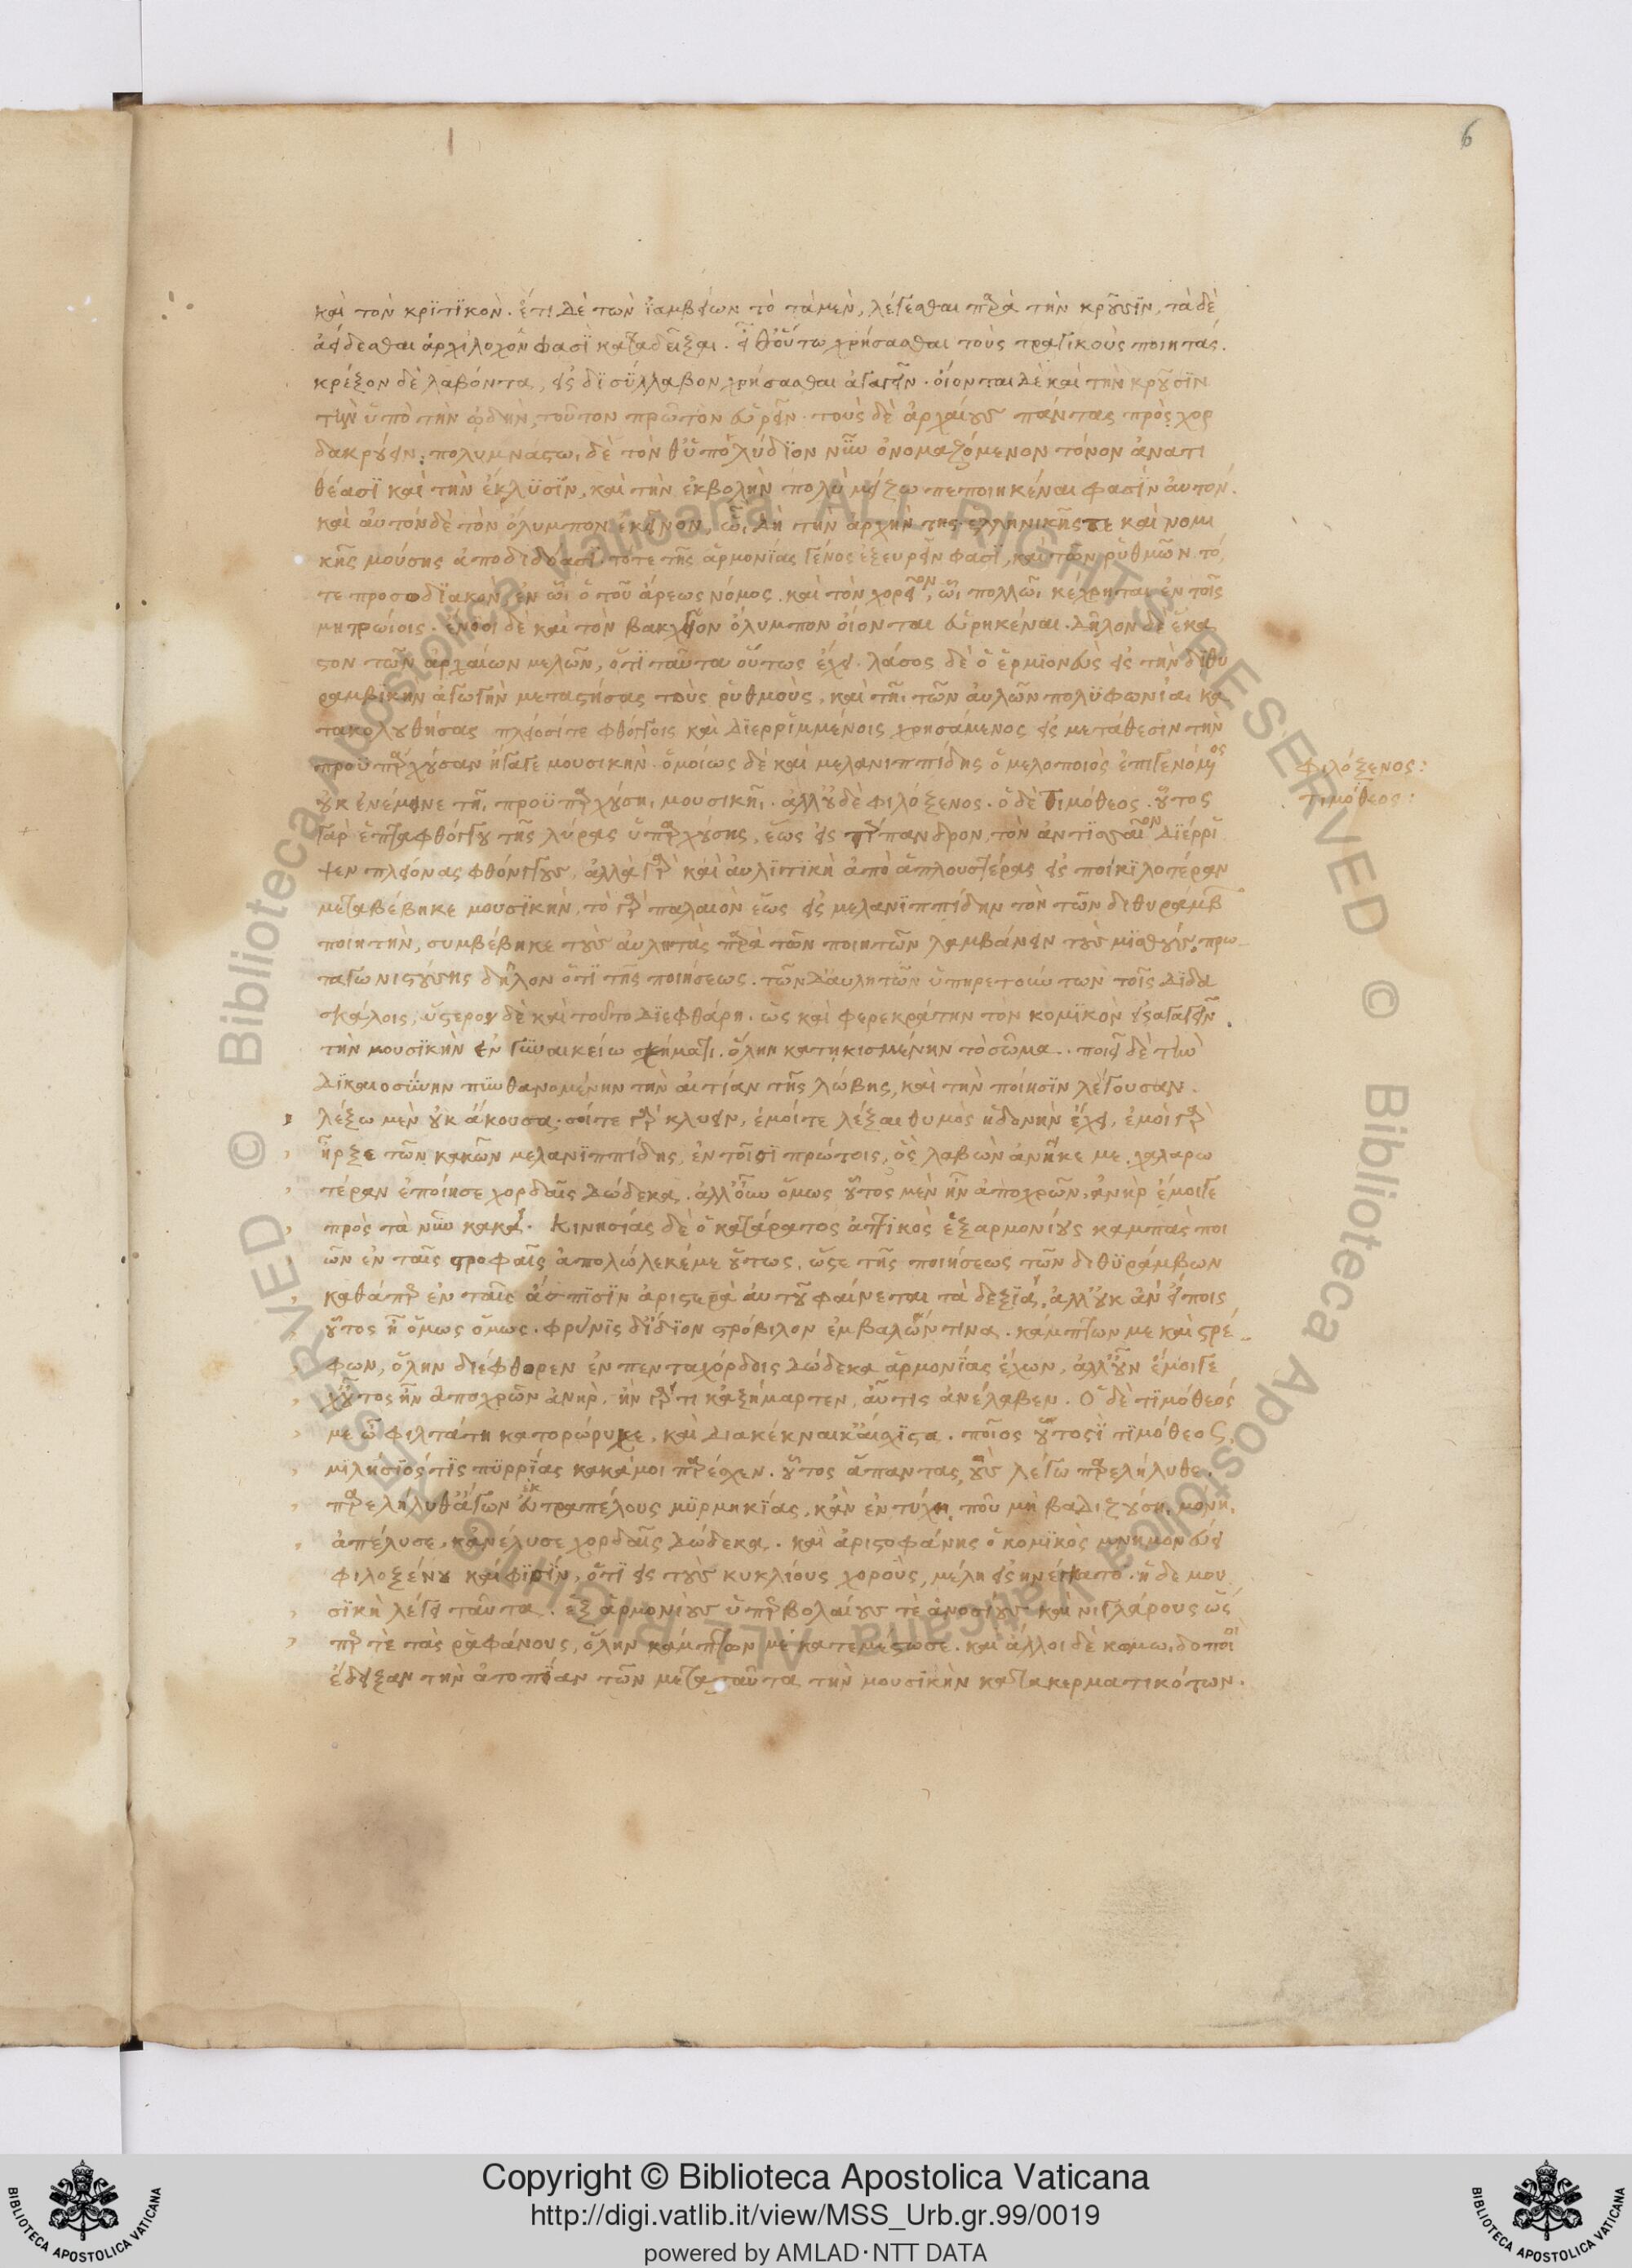 6
καὶ τὸν κρϊτϊκὸν. ἔτι δὲ τῶν ϊαμβείων τὸ τὰ μὲν, λέγεσθαι παρὰ τὴν κροῦσϊν, τὰ δὲ
ἄδεσθαι ἀρχίλοχόν φασϊ καταδεῖξαι. εἶθ' οὕτω χρήσασθαι τοὺς τραγικοὺς ποιητάς.
κρέξον δὲ λαβόντα, εἰς δϊσύλλαβον χρήσασθαι ἀγαγεῖν. οἴονται δὲ καὶ τὴν κροῦσϊν
τὴν ὑπὸ τὴν ᾠδὴν, τοῦτον πρῶτον εὑρεῖν. τοὺς δὲ ἀρχαίους πάντας πρὸς χορ
δα κρούειν: πολυμνάστωι δὲ τὸν θ' ὑπολύδϊον νῦν ὀνομαζόμενον τόνον ἀνατι
θέασϊ καὶ τὴν ἔκλυσϊν, καὶ τὴν ἐκβολὴν πολὺ μείζω πεποιηκέναι φασϊν αὐτόν.
καὶ αὐτὸν δὲ τὸν ὄλυμπον ἐκεῖνον, ὧι δὴ τὴν ἀρχὴν τῆς ἑλληνικῆς τε καὶ νομι
κῆς μούσης ἀποδιδόασϊ. τότε τῆς ἁρμονίας γένος ἐξευρεῖν φασϊ, καὶ τῶν ῥυθμῶν τό,
τε προσοδϊακὸν, ἐν ὧι ὁ τοῦ ἄρεως νόμος. καὶ τὸν χορεῖον, ὧι πολλῶι κέχρηται ἐν τοῖς
μητρώιοις. ἔνϊοι δὲ καὶ τὸν βακχεῖον ὄλυμπον οἴονται εὑρηκέναι. δῆλον δὲ ἕκα
στον τῶν ἀρχαίων μελῶν, ὅτϊ ταῦτα οὕτως ἔχει. λάσος δὲ ὁ ἑρμϊονεὺς εἰς τὴν δϊθυ
ραμβϊκὴν ἀγωγὴν μεταστήσας τοὺς ῥυθμοὺς, καὶ τῆι τῶν αὐλῶν πολϋφωνίαι κα
τακολουθήσας πλείοσί τε φθόγγοις καὶ δϊερριμμένοις χρησάμενος εἰς μετάθεσιν τὴν
προϋπάρχουσαν ἤγαγε μουσικὴν. ὁμοίως δὲ καὶ μελανιππίδης ὁ μελοποιὸς ἐπιγενόμενος
οὐκ ἐνέμεινε τῆι προϋπαρχούσηι μουσικῆι. ἀλλ' οὐδὲ φιλόξενος. ὁ δὲ τιμόθεος. οὗτος
Φιλόξενος:
τιμόθεος:
γὰρ ἑπταφθόγγου τῆς λύρας ὑπαρχούσης, ἕως εἰς τέρπανδρον, τὸν ἀντϊσσαῖον δϊέρρϊ
ψεν πλείονας φθόγγους. ἀλλὰ γὰρ καὶ αὐλϊτϊκὴ ἀπὸ ἁπλουστέρας εἰς ποικϊλοτέραν
μεταβέβηκε μουσϊκὴν. τὸ γὰρ παλαιὸν ἕως εἰς μελανϊππίδην τὸν τῶν διθυράμβων
ποιητὴν, συμβέβηκε τοὺς αὐλητὰς παρὰ τῶν ποιητῶν λαμβάνειν τοὺς μϊσθούς. πρω
ταγωνιστούσης δῆλον ὅτϊ τῆς ποιήσεως. τῶν δ' αὐλητῶν ὑπηρετούντων τοῖς δϊδα
σκάλοις, ὕστερον δὲ καὶ τοῦτο δϊεφθάρη. ὡς καὶ φερεκράτην τὸν κομϊκὸν εἰσαγαγεῖν
τὴν μουσϊκὴν ἐν γυναικείω σχήματι. ὅλην κατηκισμένην τὸ σῶμα.. ποιεῖ δὲ τὴν
δϊκαιοσύνην πυνθανομένην τὴν αἰτίαν τῆς λώβης, καὶ τὴν ποίησϊν λέγουσαν.
λέξω μὲν οὐκ ἄκουσα. σοί τε γὰρ κλυειν, ἐμοί τε λέξαι θυμὸς ἡδονὴν ἔχει. ἐμοὶ γὰρ
ἦρξε τῶν κακῶν μελανϊππίδης, ἐν τοῖσϊ πρώτοις, ὃς λαβὼν ἀνῆκέ με. χαλαρω
τέραν ἐποίησε χορδαῖς δώδεκα. ἀλλ' οὖν ὅμως οὗτος μὲν ἦν ἀποχρῶν, ἀνὴρ ἔμοιγε
πρὸς τὰ νῦν κακά. Κινησίας δὲ ὁ κατάρατος ἀττικὸς ἐξαρμονίους καμπὰς ποι
ῶν ἐν ταῖς στροφαῖς ἀπολώλεκέ με οὕτως. ὥστε τῆς ποιήσεως τῶν δϊθϋράμβων
καθάπερ ἐν ταῖς ἀσπίσϊν ἀριστερὰ αὐτοῦ φαίνεται τὰ δεξϊά. ἀλλ' οὐκ ἂν εἴποις
οὗτος ἦ ὅμως ὅμως. φρύνϊς δ' ἴδϊον στρόβιλον ἐμβαλών τινα. κάμπτων με καὶ στρέ
φων, ὅλην διέφθορεν ἐν πενταχόρδοις δώδεκα ἁρμονϊας ἔχων. ἀλλ' οὖν ἔμοιγε
χοὗτος ἦν ἀποχρῶν ἀνὴρ. ἦν γὰρ τι κἀξήμαρτεν, αὖτις ἀνέλαβεν. Ὁ δὲ τϊμόθεός
με ὦ φιλτάτη κατορώρυχε, καὶ διακέκναικ' αἴσχϊστα. ποῖος οὑτοσϊ τϊμόθεος.
μϊλήσϊός τϊς πϋρρϊας κακά μοι παρέσχεν. οὗτος ἅπαντας οὓς λέγω παρελήλυθε.
παρελήλυθ' ἄγων ἐκτραπέλους μϋρμηκϊας. κἂν ἐντύχη που μὴ βαδιζούση μόνη.
ἀπέλυσε, κἀνέλυσε χορδαῖς δώδεκα. καὶ ἀριστοφάνης ὁ κομϊκὸς μνημονεύει
φιλοξένου καί φϊσϊν, ὅτϊ εἰς τοὺς κυκλίους χοροὺς, μέλη εἰσηνέγκατο. ἡ δὲ μου
σϊκὴ λέγει ταῦτα. ἐξαρμονίους ὑπερβολαίους τὲ ἀνοσίους καὶ νιγλάρους ὥς
περ τὲ τὰς ῥαφάνους, ὅλην κάμπτων μὲ κατεμέστωσε. καὶ ἄλλοι δὲ κωμωιδοποιοὶ
ἔδειξαν τὴν ἀτοπίαν τῶν μετα ταῦτα τὴν μουσϊκὴν κατακερματικότων.
© Biblioteca Apostolica Vaticana ALL RIGHTS RESERVED © Biblioteca Apostolica Vaticana ALL RIGHTS RESERVED
BIBLIOTECA APOSTOLICA VATICANA
Copyright © Biblioteca Apostolica Vaticana
http://digi.vatlib.it/view/MSS_Urb.gr.99/0019
powered by AMLAD·NTT DATA
BIBLIOTECA APOSTOLICA VATICANA